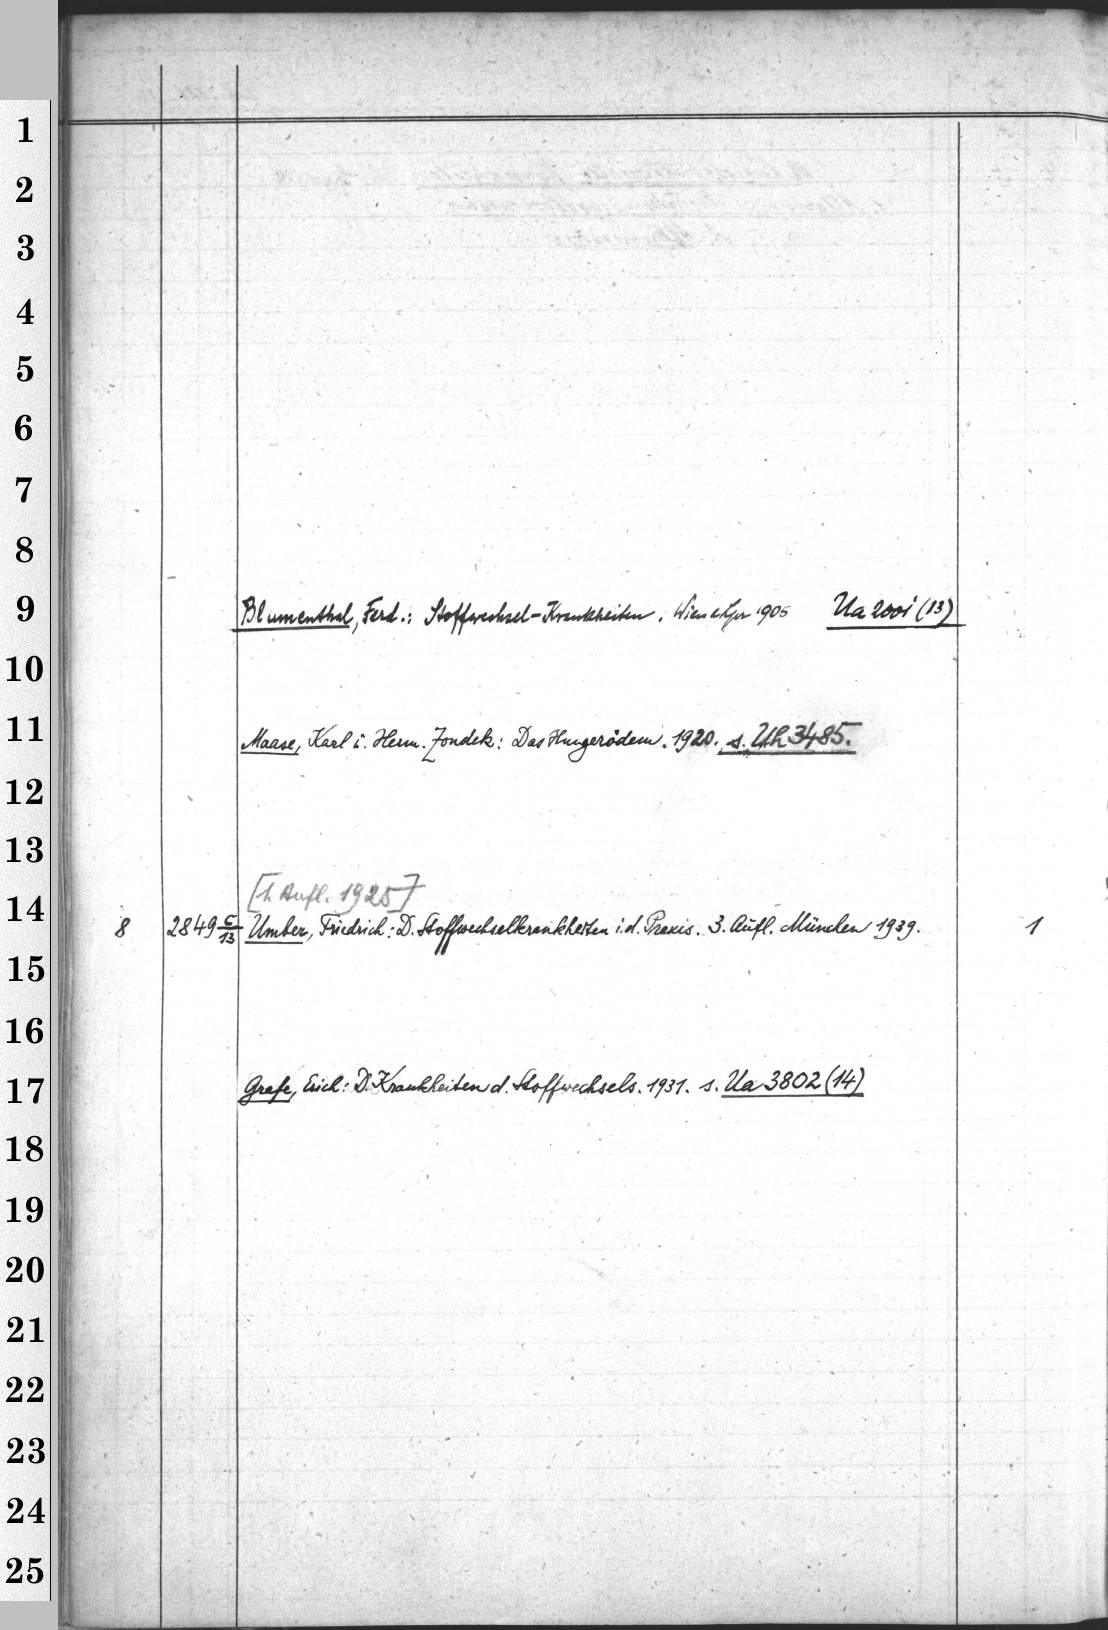 1
2
3
4
5
6
7
8
9 Blumenthal, Ferd.: Stoffwechsel-Krankheiten. Wien u Lpz 1905 Ua 2001 (13)
10
11 Maase, Karl u. Herm. Zondek: Das Hungerödem. 1920. s. Uh 3485.
12
13
[1. Aufl. 1925]
14 8 2849 c/13 Umber, Friedrich: D. Stoffwechselkrankheiten i. d. Praxis. 3. Aufl. München 1939. 1
15
16
17 Grafe, Erich: D. Krankheiten d. Stoffwechsels. 1931. s. Ua 3802 (14)
18
19
20
21
22
23
24
25